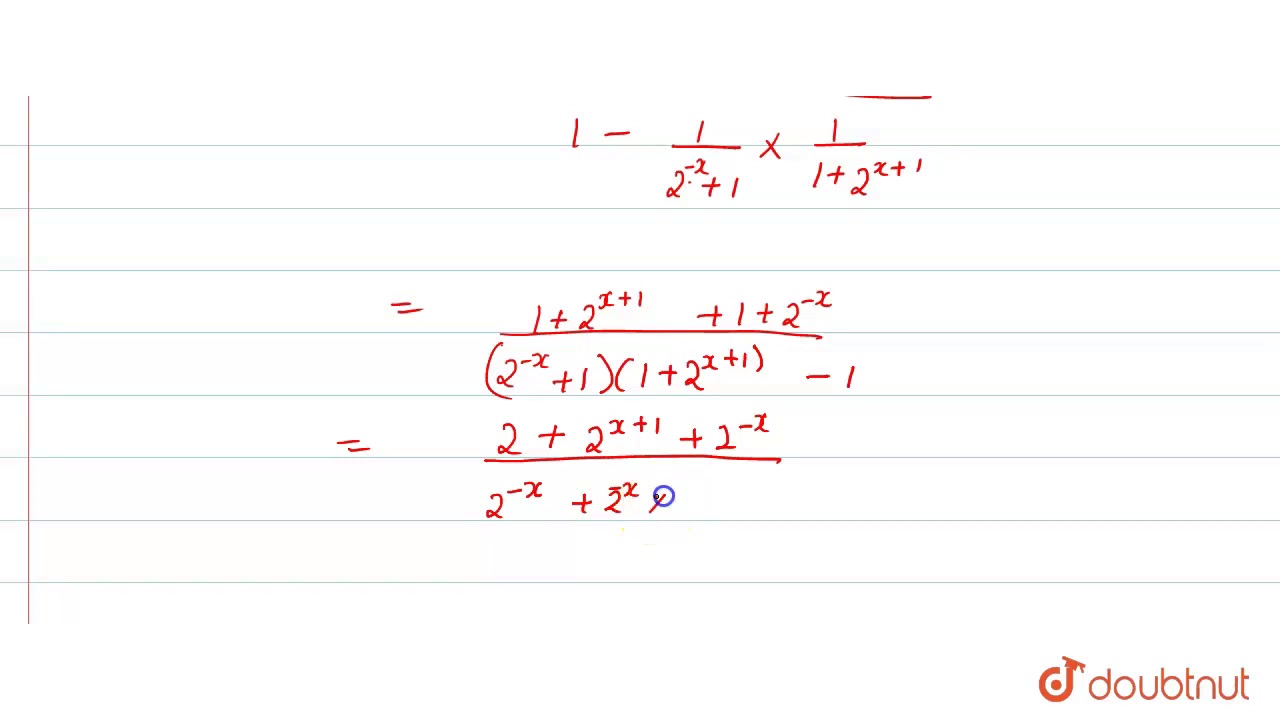 1 - 1/(2^{-x} + 1) × 1/(1 + 2^{x+1})
= (1 + 2^{x+1} + 1 + 2^{-x})/((2^{-x} + 1)(1 + 2^{x+1}) - 1)
= (2 + 2^{x+1} + 2^{-x})/(2^{-x} + 2^{-x} ×
doubtnut